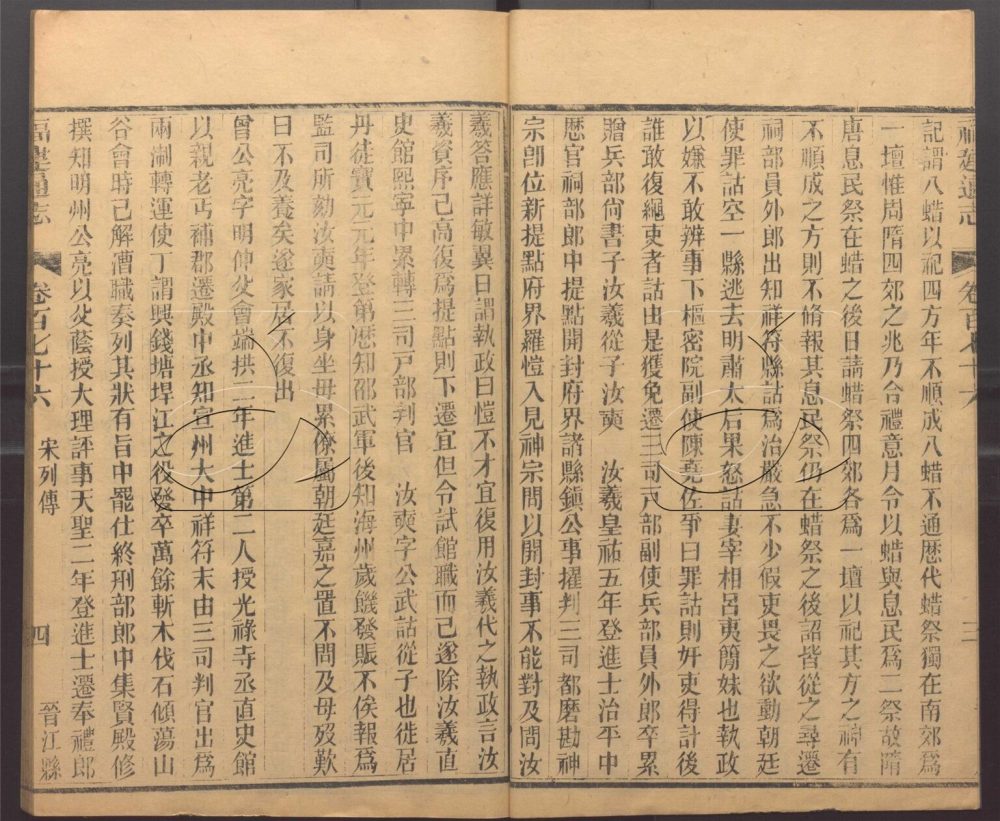 福建通志 卷百七十六 三
記謂八蜡以祀四方年不順成八蜡不通歷代蜡祭獨在南郊為
一壇惟周隋四郊之兆乃合禮意月令以蜡與息民為二祭故隋
唐息民祭在蜡之後日請蜡祭四郊各為一壇以祀其方之神有
不順成之方則不脩報其息民祭仍在蜡祭之後詔皆從之尋遷
祠部員外郎出知祥符縣詁為治嚴急不少假吏畏之欲動朝廷
使罪詁空一縣逃去明肅太后果怒詁妻宰相呂夷簡妹也執政
以嫌不敢辨事下樞密院副使陳堯佐爭曰罪詁則奸吏得計後
誰敢復繩吏者詁由是獲免遷三司戸部副使兵部員外郎卒累
贈兵部尙書子汝羲從子汝奭　汝羲皇祐五年登進士治平中
歷官祠部郎中提點開封府界諸縣鎮公事擢判三司都磨勘神
宗卽位新提點府界羅愷入見神宗問以開封事不能對及問汝
羲答應詳敏異日謂執政曰愷不才宜復用汝羲代之執政言汝
羲資序已高復為提點則下遷宜但令試館職而已遂除汝羲直
史館熙寧中累轉三司戸部判官　汝奭字公武詁從子也徙居
丹徒寶元元年登第歷知邵武軍後知海州歲饑發賑不俟報為
監司所劾汝奭請以身坐毋累僚屬朝廷嘉之置不問及母歿歎
曰不及養矣遂家居不復出
曾公亮字明仲父會端拱二年進士第二人授光祿寺丞直史館
以親老丐補郡遷殿中丞知宣州大中祥符末由三司判官出為
兩浙轉運使丁謂興錢塘堤江之役發卒萬餘斬木伐石傾蕩山
谷會時已解漕職奏列其狀有旨中罷仕終刑部郎中集賢殿修
撰知明州公亮以父蔭授大理評事天聖二年登進士遷奉禮郎
福建通志 卷百七十六 宋列傳 四 晉江縣